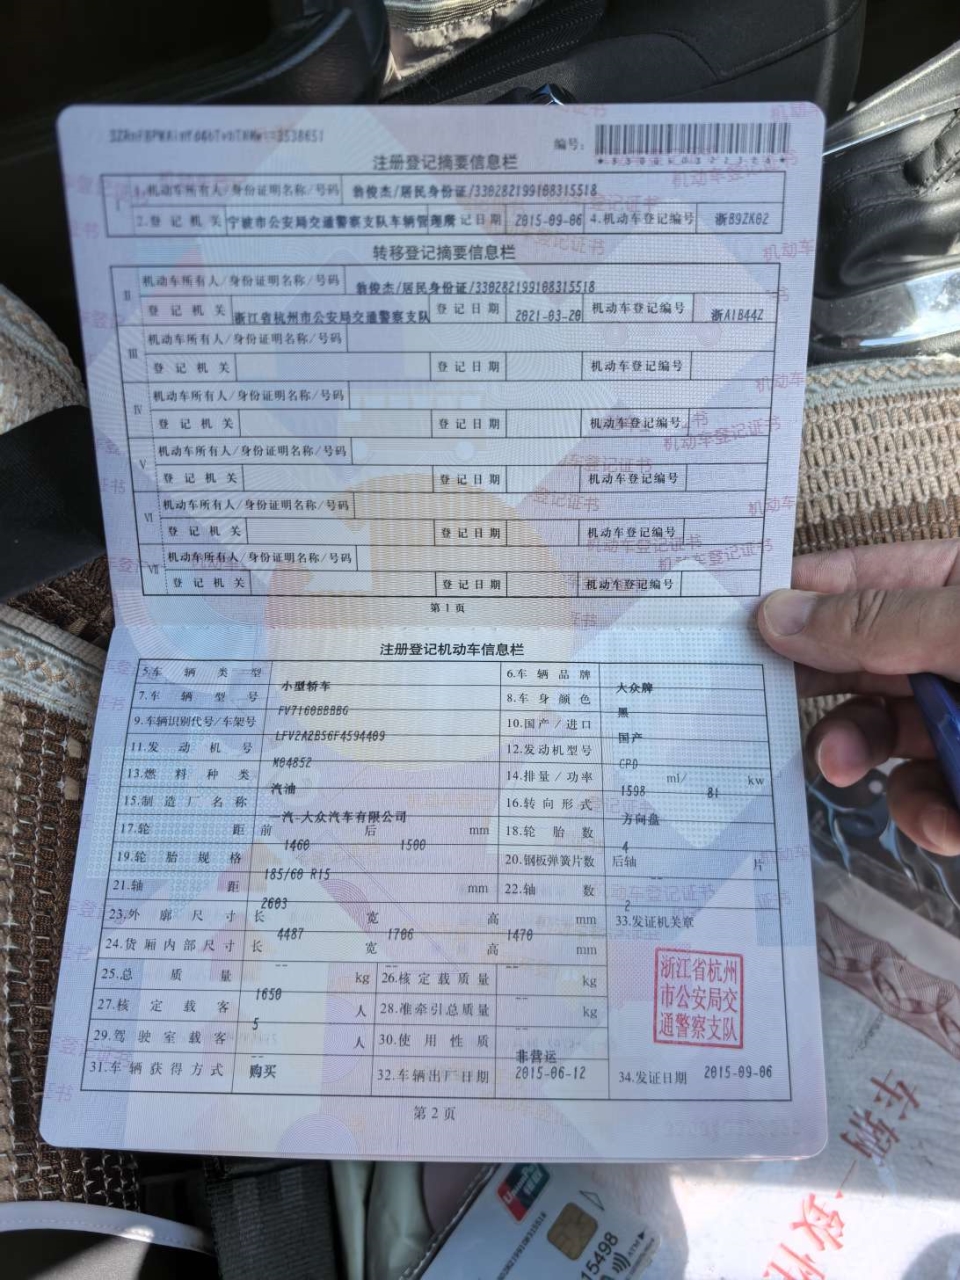 编号:
注册登记摘要信息栏
1.机动车所有人/身份证明名称/号码 翁俊杰/居民身份证/330282199108315518
2.登记机关 宁波市公安局交通警察支队车辆管理所 登记日期 2015-09-06 4.机动车登记编号 浙B9ZK02
转移登记摘要信息栏
II 机动车所有人/身份证明名称/号码 翁俊杰/居民身份证/330282199108315518
登记机关 浙江省杭州市公安局交通警察支队 登记日期 2021-03-20 机动车登记编号 浙A1B44Z
III 机动车所有人/身份证明名称/号码
登记机关 登记日期 机动车登记编号
IV 机动车所有人/身份证明名称/号码
登记机关 登记日期 机动车登记编号
V 机动车所有人/身份证明名称/号码
登记机关 登记日期 机动车登记编号
VI 机动车所有人/身份证明名称/号码
登记机关 登记日期 机动车登记编号
VII 机动车所有人/身份证明名称/号码
登记机关 登记日期 机动车登记编号
第1页
注册登记机动车信息栏
5.车辆类型 小型轿车 6.车辆品牌 大众牌
7.车辆型号 FV7160BBBBG 8.车身颜色 黑
9.车辆识别代号/车架号 LFV2A2BS6F4594409 10.国产/进口 国产
11.发动机号 M04852 12.发动机型号 CPD
13.燃料种类 汽油 14.排量/功率 1598 ml/ 81 kw
15.制造厂名称 一汽-大众汽车有限公司 16.转向形式 方向盘
17.轮距 前 1460 后 1500 mm 18.轮胎数 4
19.轮胎规格 185/60 R15 20.钢板弹簧片数 后轴 -- 片
21.轴距 2603 mm 22.轴数 2
23.外廓尺寸 长 4487 宽 1706 高 1470 mm 33.发证机关章
24.货厢内部尺寸 长 -- 宽 -- 高 -- mm
25.总质量 1650 kg 26.核定载质量 -- kg
27.核定载客 5 人 28.准牵引总质量 -- kg
29.驾驶室载客 -- 人 30.使用性质 非营运
31.车辆获得方式 购买 32.车辆出厂日期 2015-06-12 34.发证日期 2015-09-06
浙江省杭州
市公安局交
通警察支队
第2页
15498
ATM